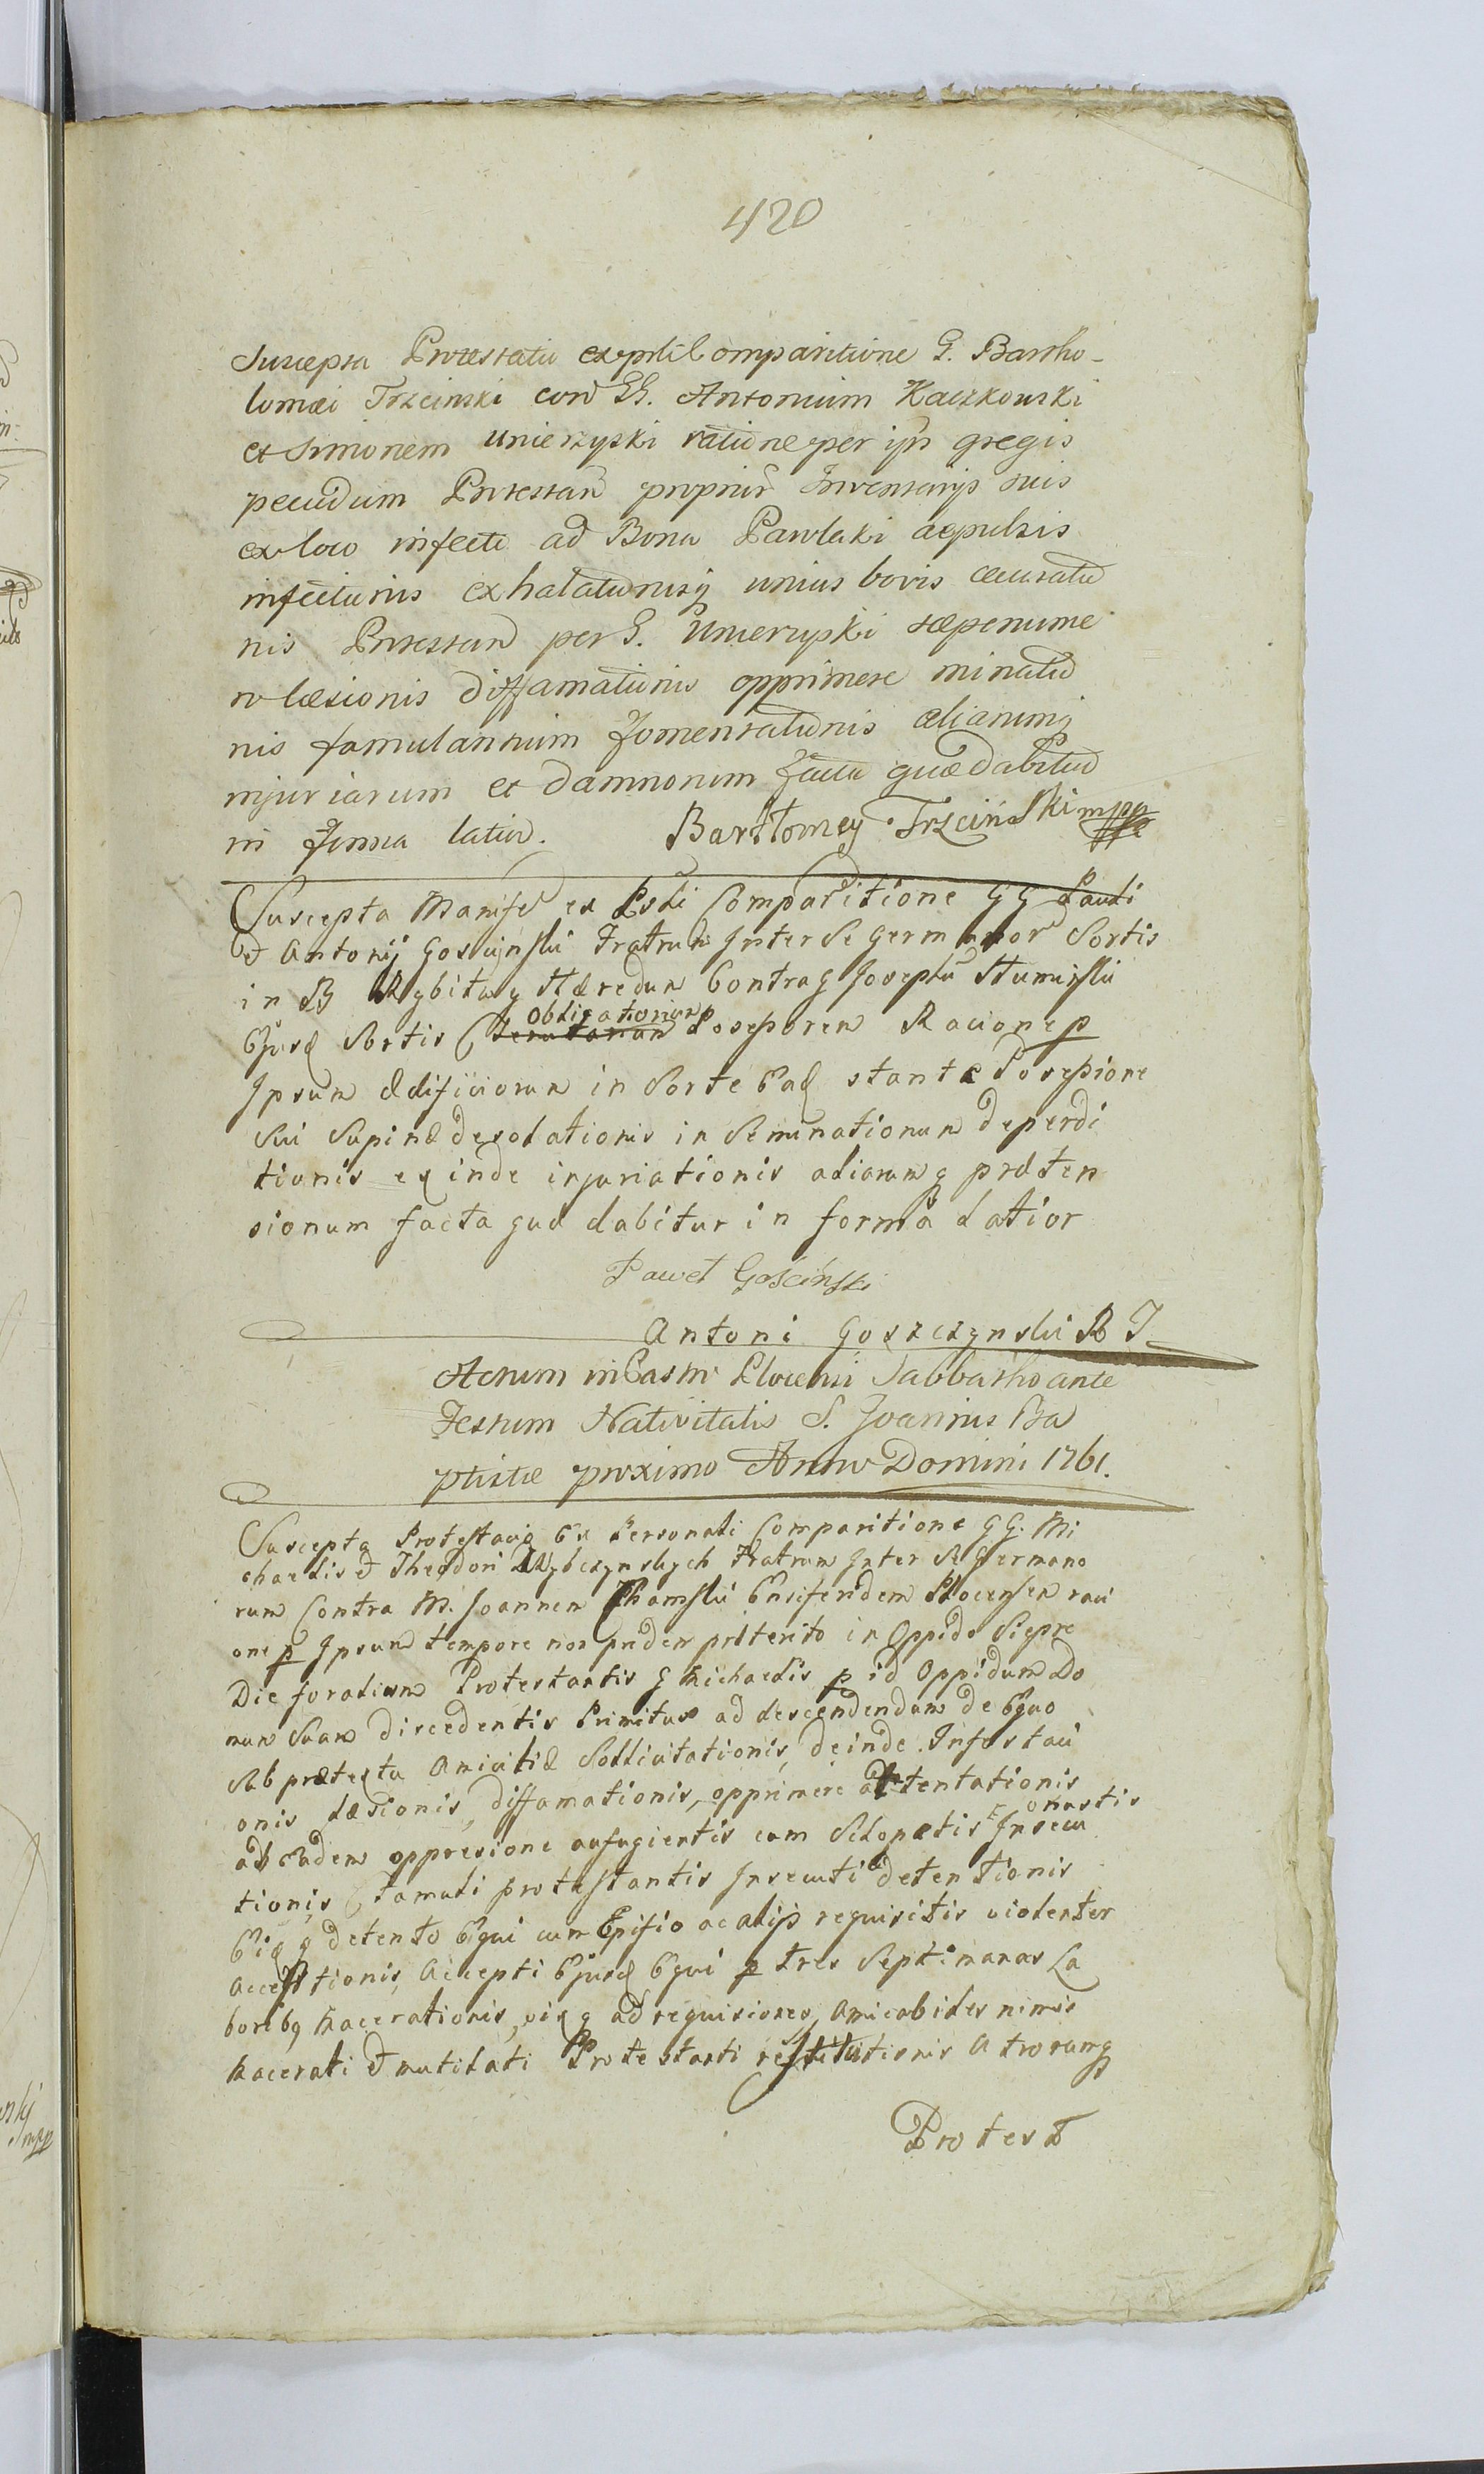 420
Suscepta Protestatio ex prtli Comparitione G. Bartho-
lomæi Trzcinski con GG. Antonium Kaczkowski
et Simonem Unierzyski ratione per ips gregis
pecudum Protestan propriis Inventarijs suis
ex loco infecto ad Bona Pawlaki depulsis
infectionis exhalationisq unius bovis causatio
nis Protestan per G. Unierzyski sæpenume
ro læsionis diffamationis opprimere minatio
nis famulantium fomentationis aliarumq
injuriarum et damnorum facta quæ dabitur
in forma latior. Bartłomey Trzcinski mpp
Suscepta Manife ex Psli Comparitione GG Pauli
et Antonij Goscinski Fratrum Inter Se Germanor Sortis
in B Rybitwy Hæredum Contra G Josephū Stuminski
Ejusd Sortis Obligatorium Possesorem Racione p
Ipsum ædificiorum in Sorte Ead stante Possesione
Sui Supinæ desolationis in Seminationum deperdi
tionis ex inde injuriationis aliarumq præten
sionum facta quæ dabitur in forma Latior
Paweł Gościnski
Antoni Goszczynski R T
Actum in Castro Plocensi Sabbatho ante
Festum Nativitatis S. Joannis Ba
ptistæ proximo Anno Domini 1761.
Suscepta Protestacio Ex Personali Comparitione GG. Mi
chaelis et Theodori Rybczynskych Fratrum Inter Se Germano
rum Contra M. Joannem Chamski Ensiferidem Plocensem raci
one p Ipsum tempore non pridem præterito in Oppido Siepre
Die foralium Protestantis G Michaelis p id Oppidum Do
mum Suam discedentis Primitus ad descendendum de Equo
Sub prætextu Amicitiæ Sollicitationis, deinde Infestaci
onis læsionis, diffamationis, opprimere attentationis
ab eadem oppresione aufugientis cum Sclopetis onustis Insecu
tionis Famuli protestantis Insecuti detentionis
Eiq q detento Equi cum Epifio ac alijs requisitis violenter
Acceptionis, Accepti Ejusd Equi p tres Septimanas La
boribq Macerationis, vixq ad requisiones, Amicabiles nimis
Macerati et mutilati Protestanti restitutionis Atrorumq
Protest